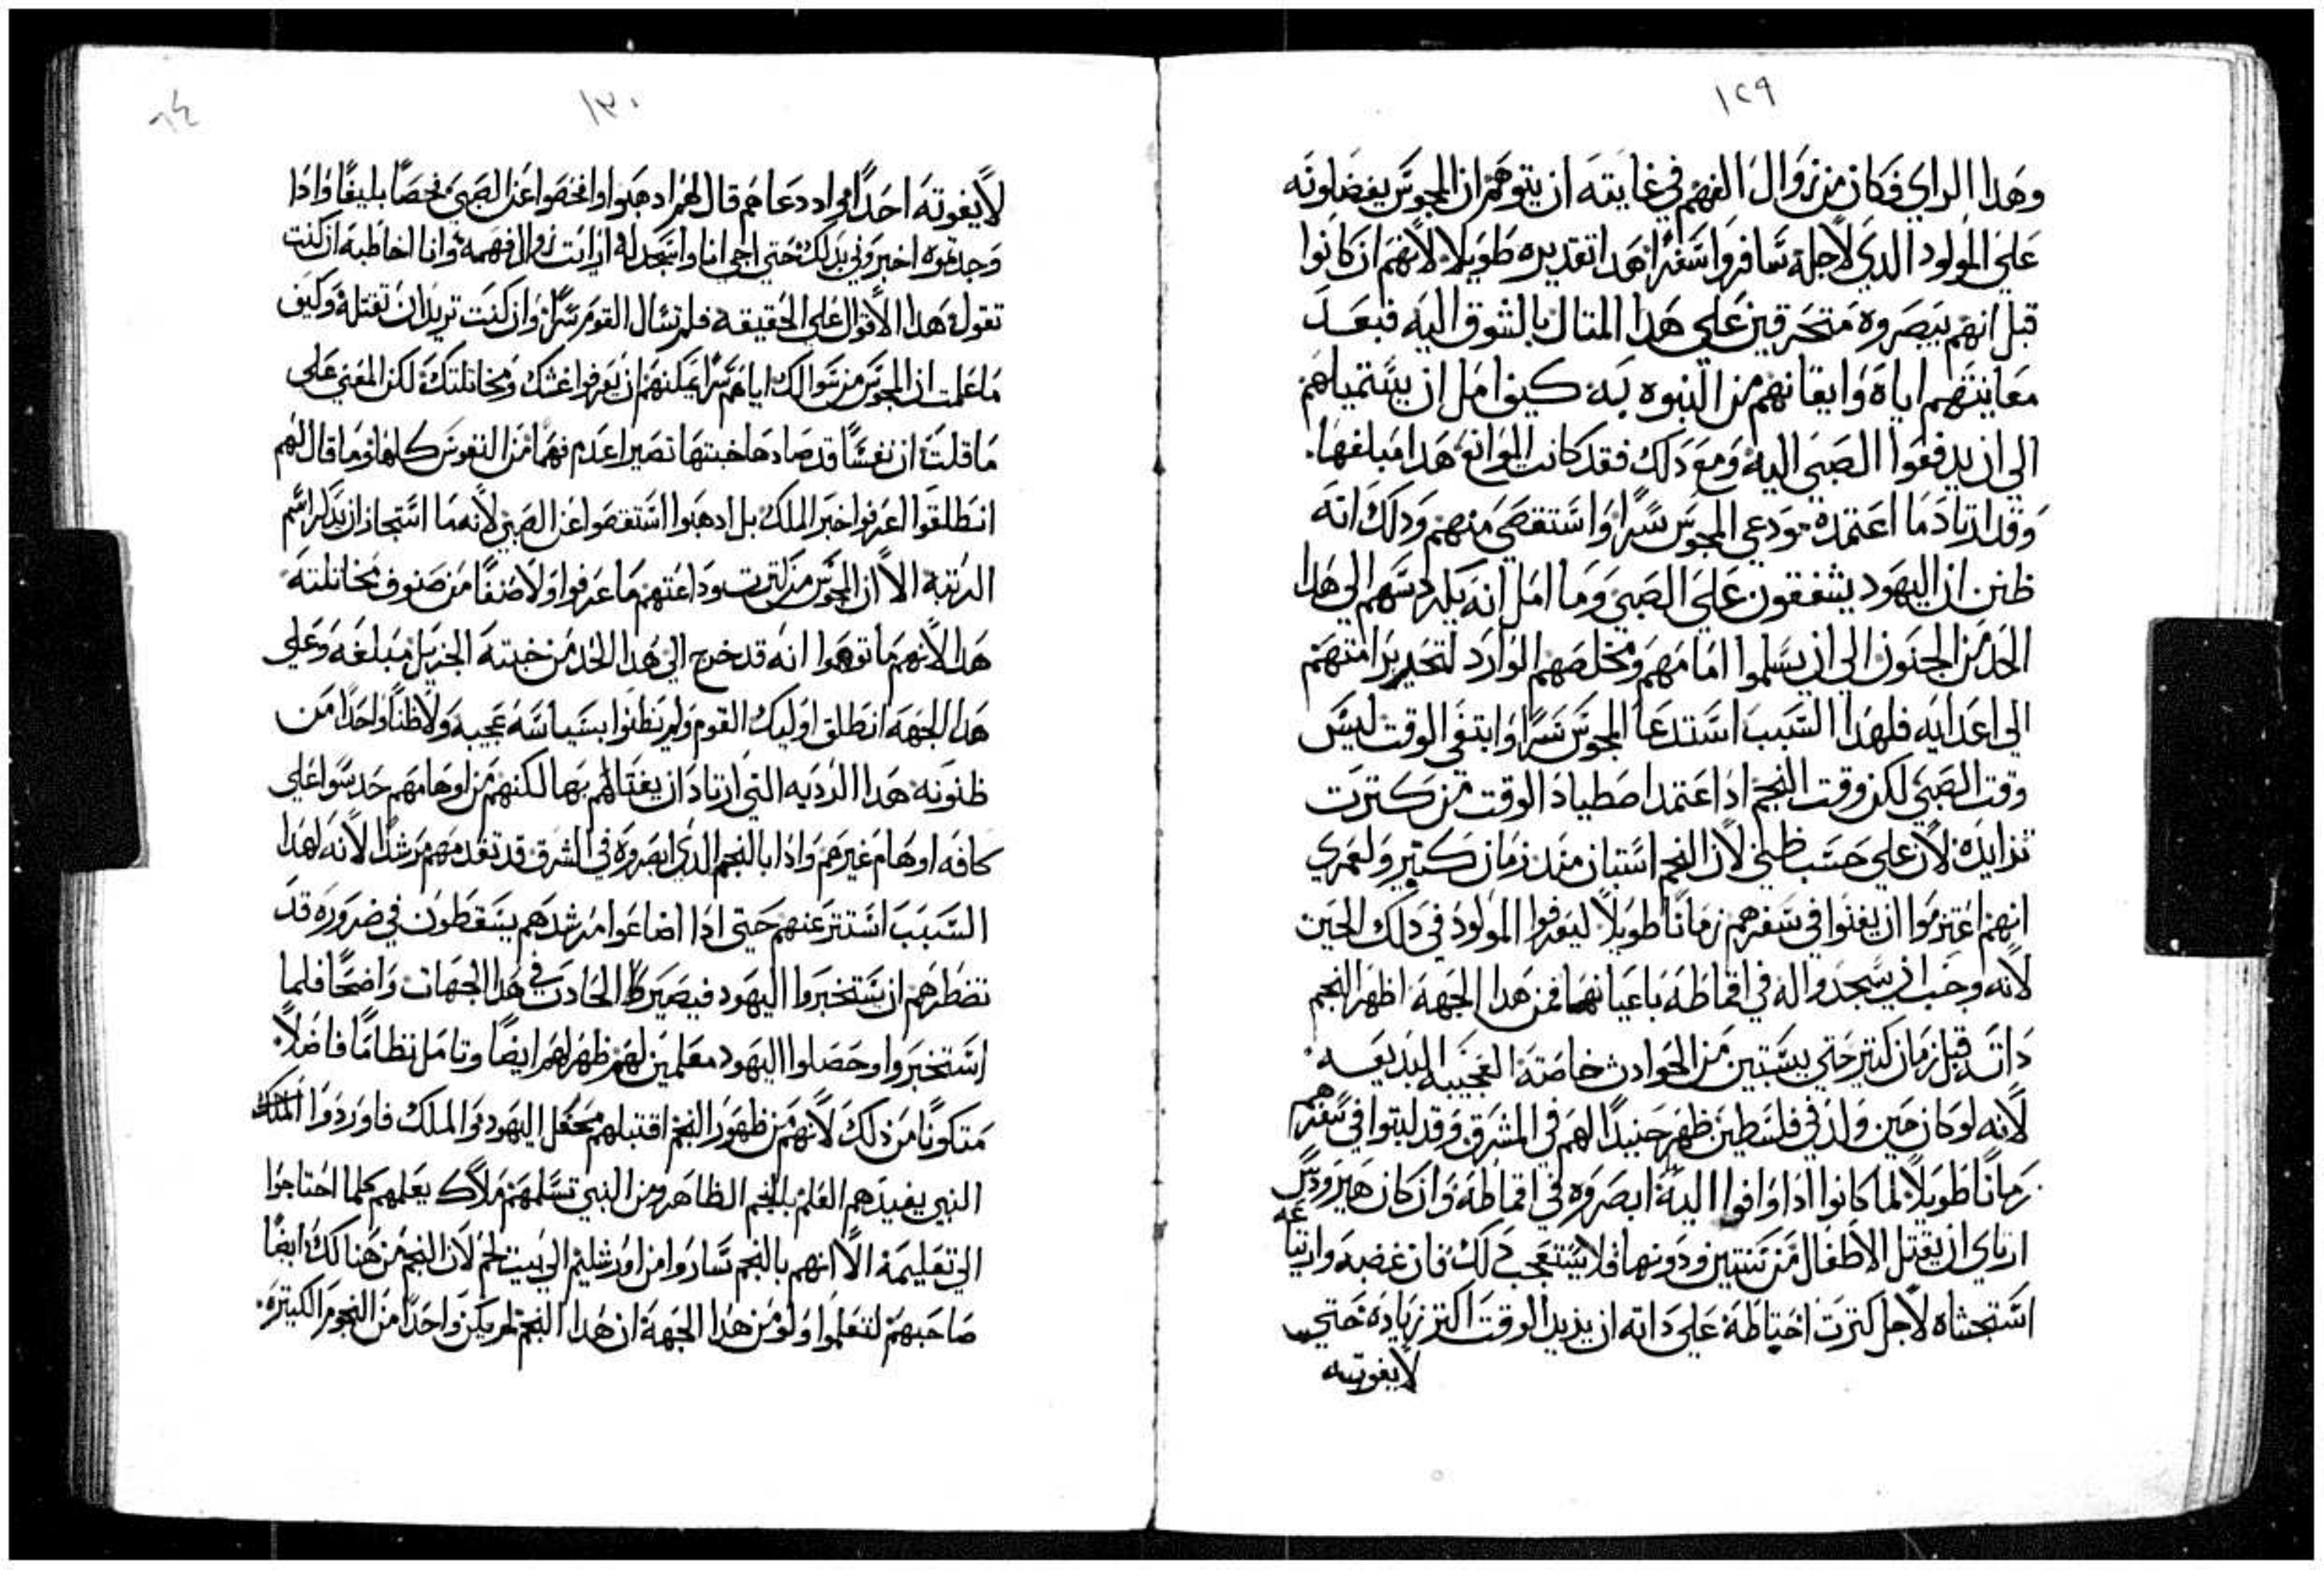 ١٢٩
وهدا الراي فكان من زوال الفهم في غايته ان يتوهم ان المجوس يفضلونه
علي المولود الدي لاجله سافروا سفرا هدا تقديره طويلا لانهم ان كانوا
قبل انهم يبصروه متحرقين علي هدا المتال بالشوق اليه فبعد
معاينتهم اياه وايقانهم من النبوه به كيف امل ان يستميلهم
الي ان يدفعوا الصبي اليه ومع دلك فقد كانت الموانع هدا مبلغها
وقد ارتاد ما اعتمده ودعي المجوس سرا واستقصي منهم ودلك انه
ظنن ان اليهود يشفقون علي الصبي وما امل انه يلد سهم الي هدا
الحد من الجنون الي ان يسلموا امامهم ومخلصهم الوارد لتحرير امتهم
الي اعدايه فلهدا السبب استدعا المجوس سرا وابتغي الوقت ليس
وقت الصبي لكن وقت النجم ادا اعتمد اصطياد الوقت من كترت
تزايده لان علي حسب ظني لان النجم استبان مند زمان كتير ولعمري
انهم اعتزموا ان يفنوا في سفرهم زمانا طويلا ليعرفوا المولود في دلك الحين
لانه وجب ان يسجدوا له في اقماطه باعيانها فمن هدا الجهة اظهر النجم
داته قبل زمان كتير حتي يستبين من الحوادت خاصته العجيبه البديعه
لانه لو كان حين ولد في فلسطين ظهر حينيدا لهم في المشرق وقد لبتوا في سفرهم
زمانا طويلا لما كانوا ادا وافوا اليه ابصروه في اقماطه وان كان هيرودس
ارتاي ان يقتل الاطفال من سنتين ودونها فلا يستعجب دلك فان غضبه وارتياعه
استجشاه لاجل كترت احتياطه علي داته ان يزيد الوقت اكتر زياده حتي
لا يفوته
١٣٠
٦٤
لا يفوته احدا مواد دعاهم قال لهم ادهبوا وافحصوا عن الصبي فحصا بليغا وادا
وجدتموه اخبروني بدلك حتي اجي انا واسجد له ارايت زوال فهمه وانا اخاطبه ان كنت
تقول هدا الاقوال علي الحقيقه فلم تسال القوم سرا وان كنت تريد ان تقتله وكيف
ما علمت ان المجوس من سوالك اياهم سرا يمكنهم ان يعرفوا غشك ومخاتلتك لكن المعني علي
ما قلت ان نفسا قد صادها خبتها تصير اعدم فهما من النفوس كلها وما قال لهم
انطلقوا اعرفوا خبر الملك بل ادهبوا استقصوا عن الصبي لانه ما استجاز ان يدكر اسم
الرتبة الا ان المجوس من كترت وداعتهم ما عرفوا ولا صنفا من صنوف مخاتلته
هدا لانهم ما توهموا انه قد خرج الي هدا الحد من خبته الجزيل مبلغه وعلي
هدا الجهه انطلق اوليك القوم ولم يظنوا بسياسه عجيبه ولا ظنا واحدا من
ظنونه هدا الرديه التي ارتاد ان يغتالهم بها لكنهم من اوهامهم حدسوا علي
كافه اوهام غيرهم وادا بالنجم الدي ابصروه في الشرق قد تقدمهم مرشدا لانه لهدا
السبب استتر عنهم حتي ادا اضاعوا مرشدهم يسقطون في ضروره قد
تضطرهم ان يستخبروا اليهود فيصير الحادت في هدا الجهات واضحا فلما
استخبروا وحصلوا اليهود معلمين لهم ظهر لهم ايضا وتامل نظاما فاضلا
متكونا من ذلك لانهم من ظهور النجم اقتبلهم محفل اليهود والملك فاوردوا
النبي يفيدهم العلم بالنجم الظاهر ومن النبي تسلمهم ملاك يعلمهم كلما احتاجوا
الي تعليمه الا انهم بالنجم ساروا من اورشليم الي بيت لحم لان النجم من هنالك ايضا
صاحبهم لتعلموا ولو من هدا الجهة ان هدا النجم لم يكن واحدا من النجوم الكتيره